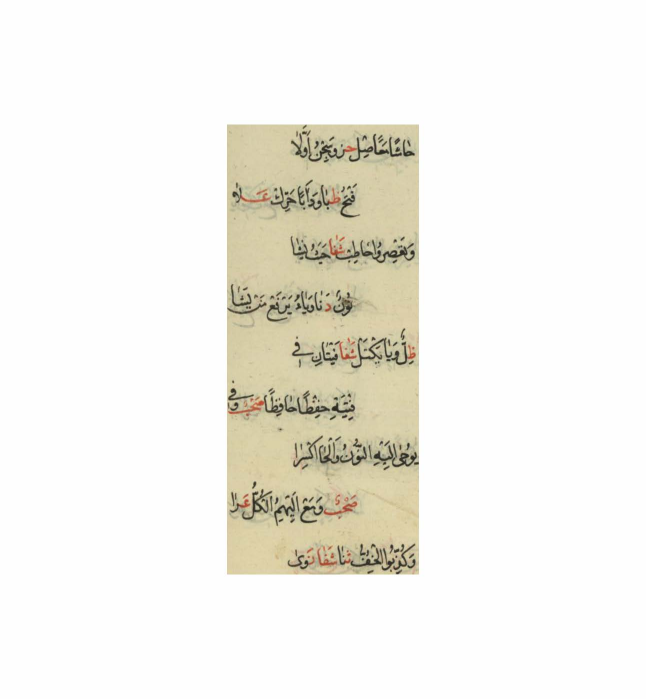 حَاشَا مَعًا صِلْ حز وَسِجْنُ أَوَّلَا
فَتْحُ ظُبا وَدَأَبًا حَرِّكْ عَلَا
وَيَعْصِرُوا خاطِبْ شَفا حَيْثُ يَشَا
نُونُ دَنا وَيَاءُ يَرْفَع مَنْ يَشَا
ظِلٌّ وَيَا يَكْتَلْ شَفا فِتْيَانِ في
فِتْيَةِ حِفْظًا حَافِظًا صَحْبٌ وَفي
يُوحَى إِلَيْهِ النُّونُ وَالْحَا اكْسِرَا
صَحْبٌ وَمَعْ إِلَيْهِمُ الْكُلُّ عَرَا
وَكُذِّبُوا الْخِفُّ ثَنا شَفا نَوَى